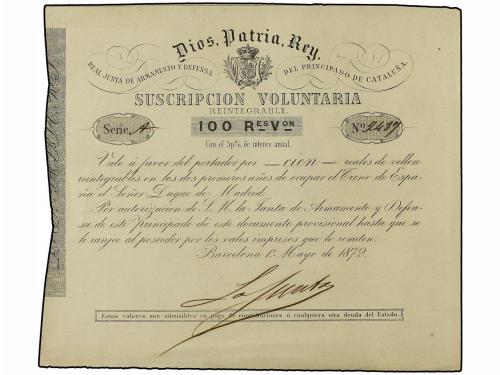 Dios, Patria, Rey.
REAL JUNTA DE ARMAMENTO Y DEFENSA DEL PRINCIPADO DE CATALUÑA.
SUSCRIPCION VOLUNTARIA
REINTEGRABLE.
Serie A 100 Rᴱˢ Vᴼᴺ Nº 2487
Con el 5p% de interés anual.
Vale á favor del portador por — cien — reales de vellon
reintegrables en los dos primeros años de ocupar el Trono de Espa-
ña el Señor Duque de Madrid.
Por autorizacion de S. M. la Junta de Armamento y Defen-
sa de este Principado da este documento provisional hasta que se
le canjee al poseedor por los vales impresos que le remiten.
Barcelona 1º Mayo de 1872.
La Junta
Estos valores son admisibles en pago de contribuciones ó cualquiera otra deuda del Estado.